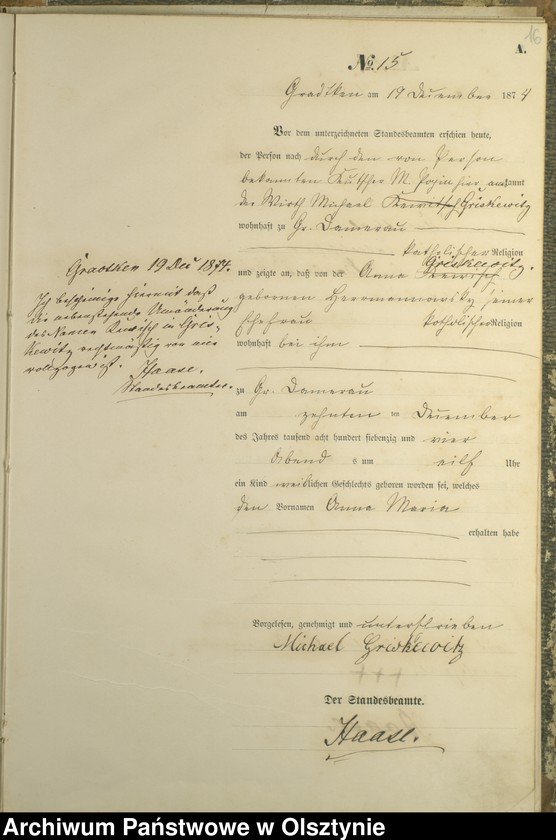 16
A.
No. 15
Gradtken am 19 December 1874
Vor dem unterzeichneten Standesbeamten erschien heute,
der Person nach durch den von Person
bekannten Kutscher M. hier anerkannt
der Wirth Michael Kewitsch Griskewitz
wohnhaft zu Gr. Damerau
katholischer Religion
Griskewitz
und zeigte an, daß von der Anna Kewitsch
gebornen Herrmannowsky seiner
Ehefrau katholischer Religion
wohnhaft bei ihm
zu Gr. Damerau
am zehnten ten December
des Jahres tausend acht hundert siebenzig und vier
Abends um eilf Uhr
ein Kind weiblichen Geschlechts geboren worden sei, welches
den Vornamen Anna Maria
erhalten habe
Gradtken 19 Dec 1874.
Ich bescheinige hiermit daß
die nebenstehende Umänderung
des Namen Kewitsch in Gris-
kewitz rechtmäßig von mir
vollzogen ist. Haase.
Standesbeamter.
Vorgelesen, genehmigt und unterschrieben
Michael Griskewitz
+++
Der Standesbeamte.
Haase.
Archiwum Państwowe w Olsztynie